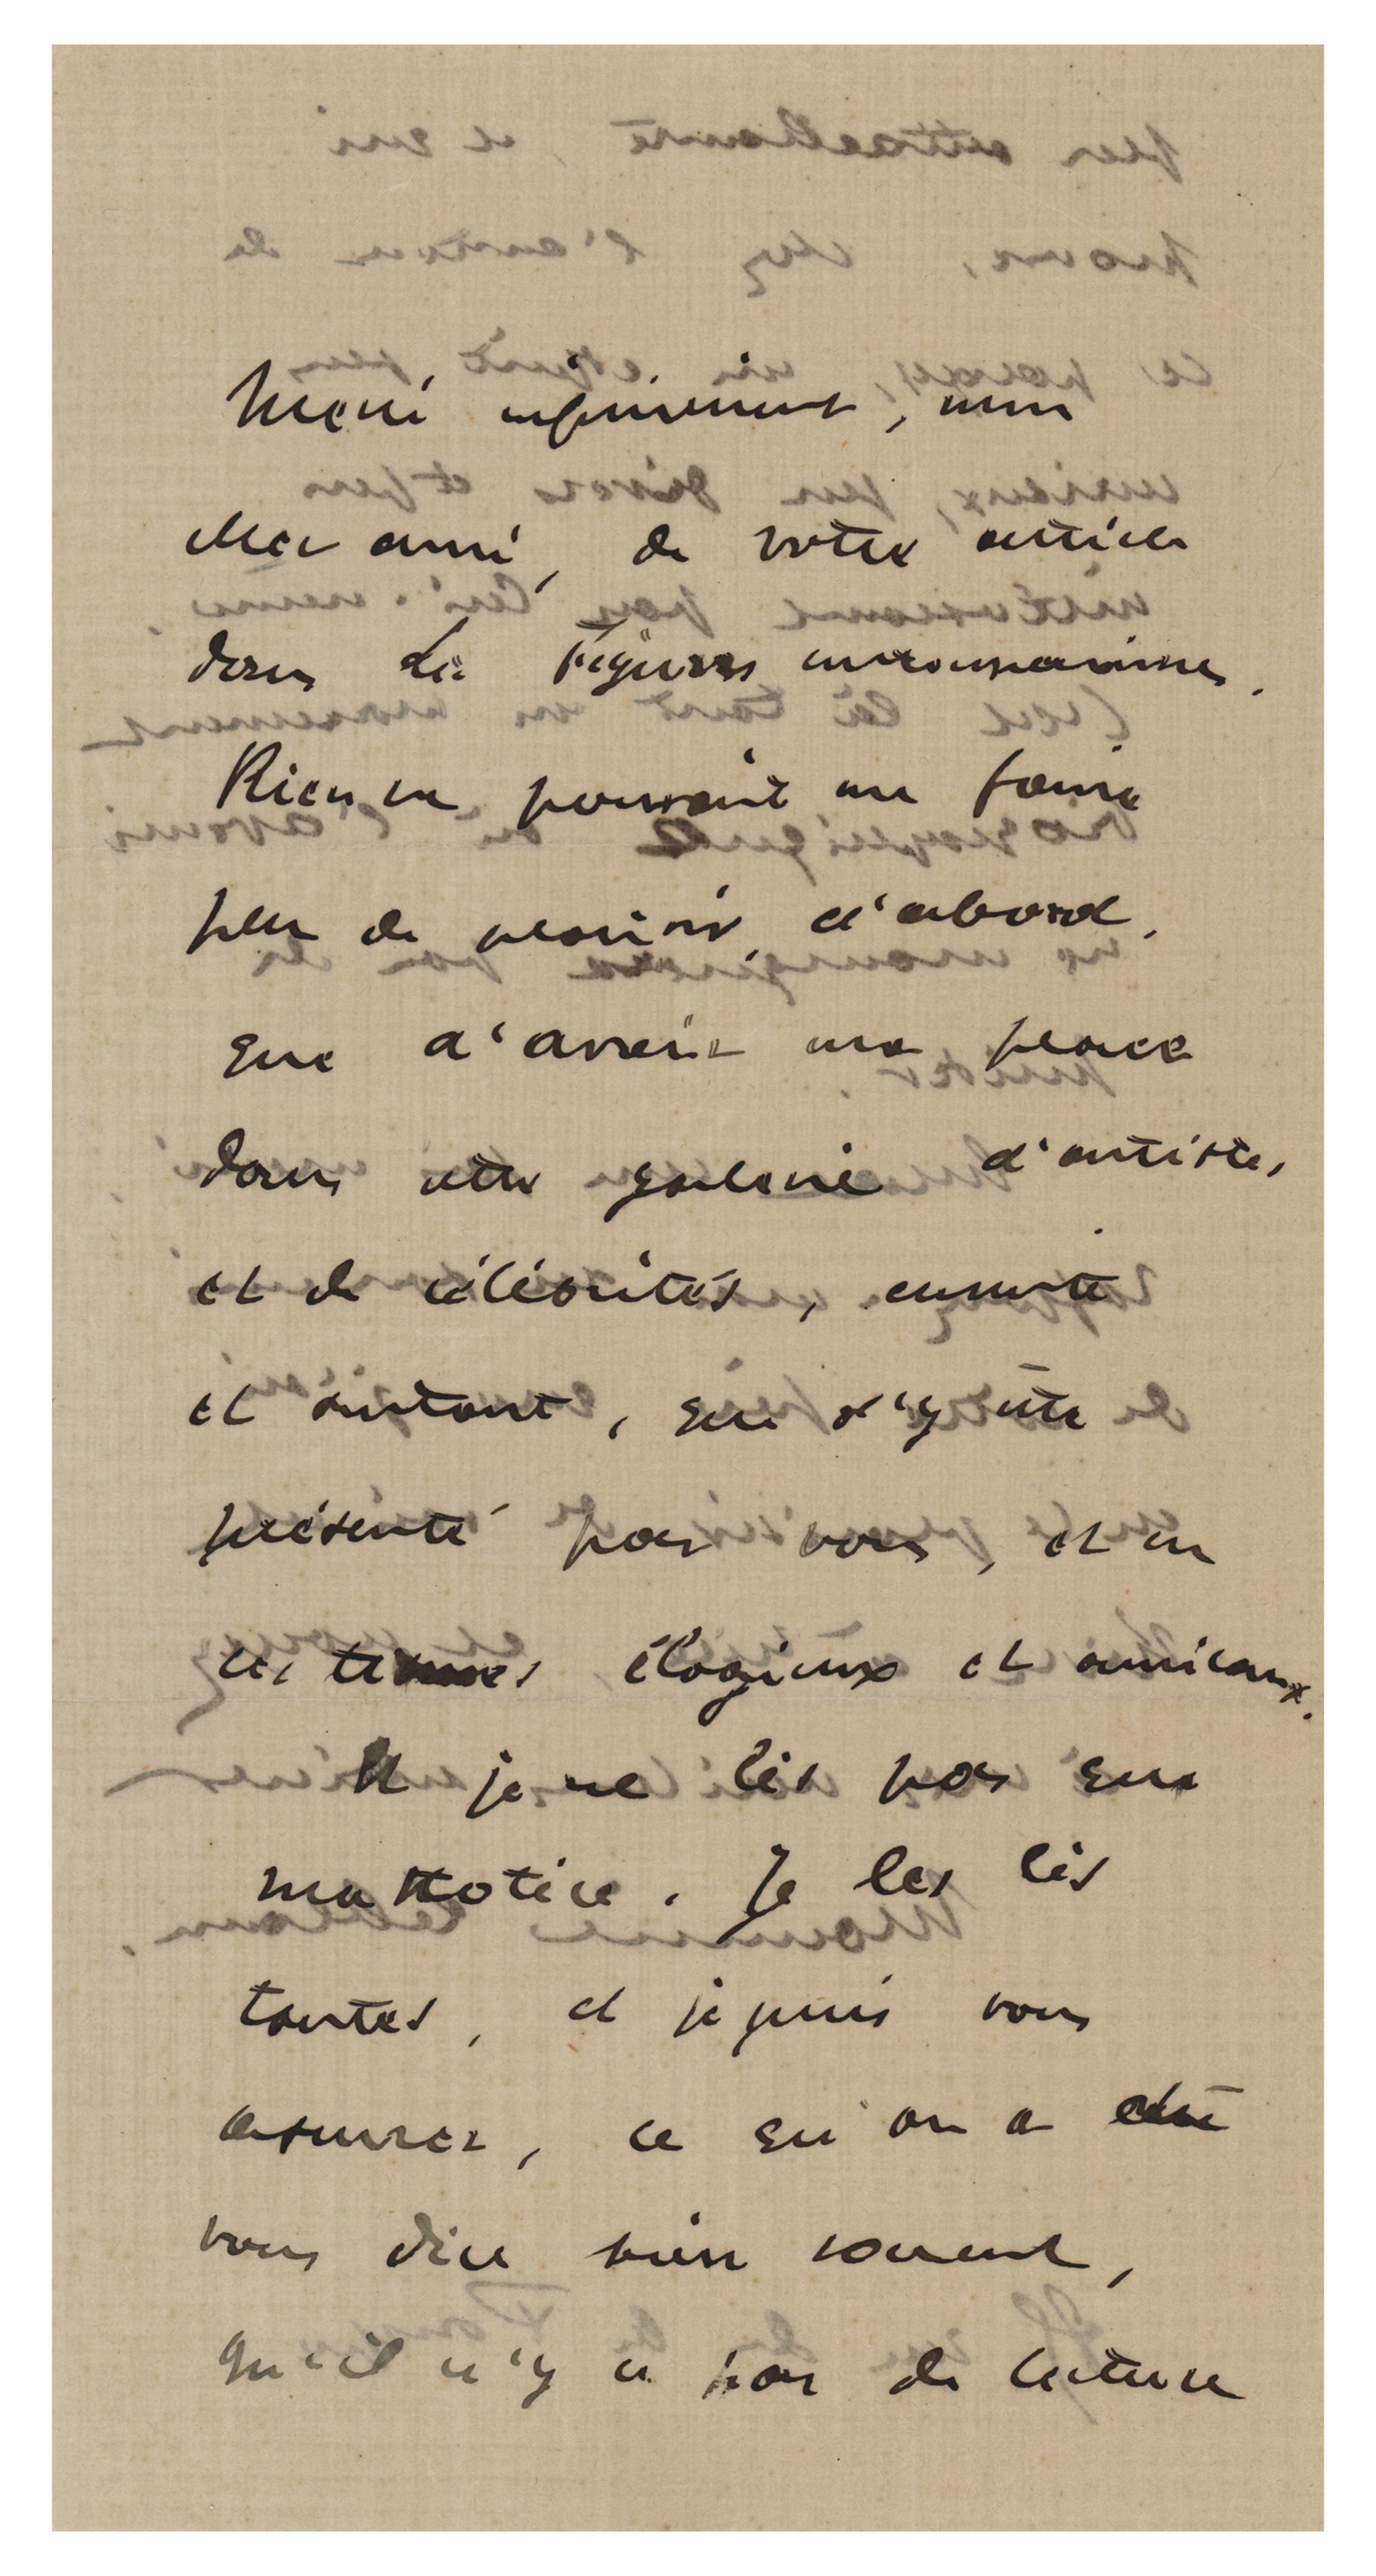 Merci infiniment, mon
cher ami, de votre article
dans les Figures contemporaines.
Rien ne pouvait me faire
plus de plaisir, d'abord,
que d'avoir ma place
dans cette galerie d'artistes
et de célébrités, ensuite
et surtout, que d'y être
présenté par vous, et en
ces termes élogieux et amicaux.
Et je ne lis pas que
ma notice. Je les lis
toutes, et je puis vous
assurer, ce qu'on a dû
vous dire bien souvent,
qu'il n'y a pas de lecture